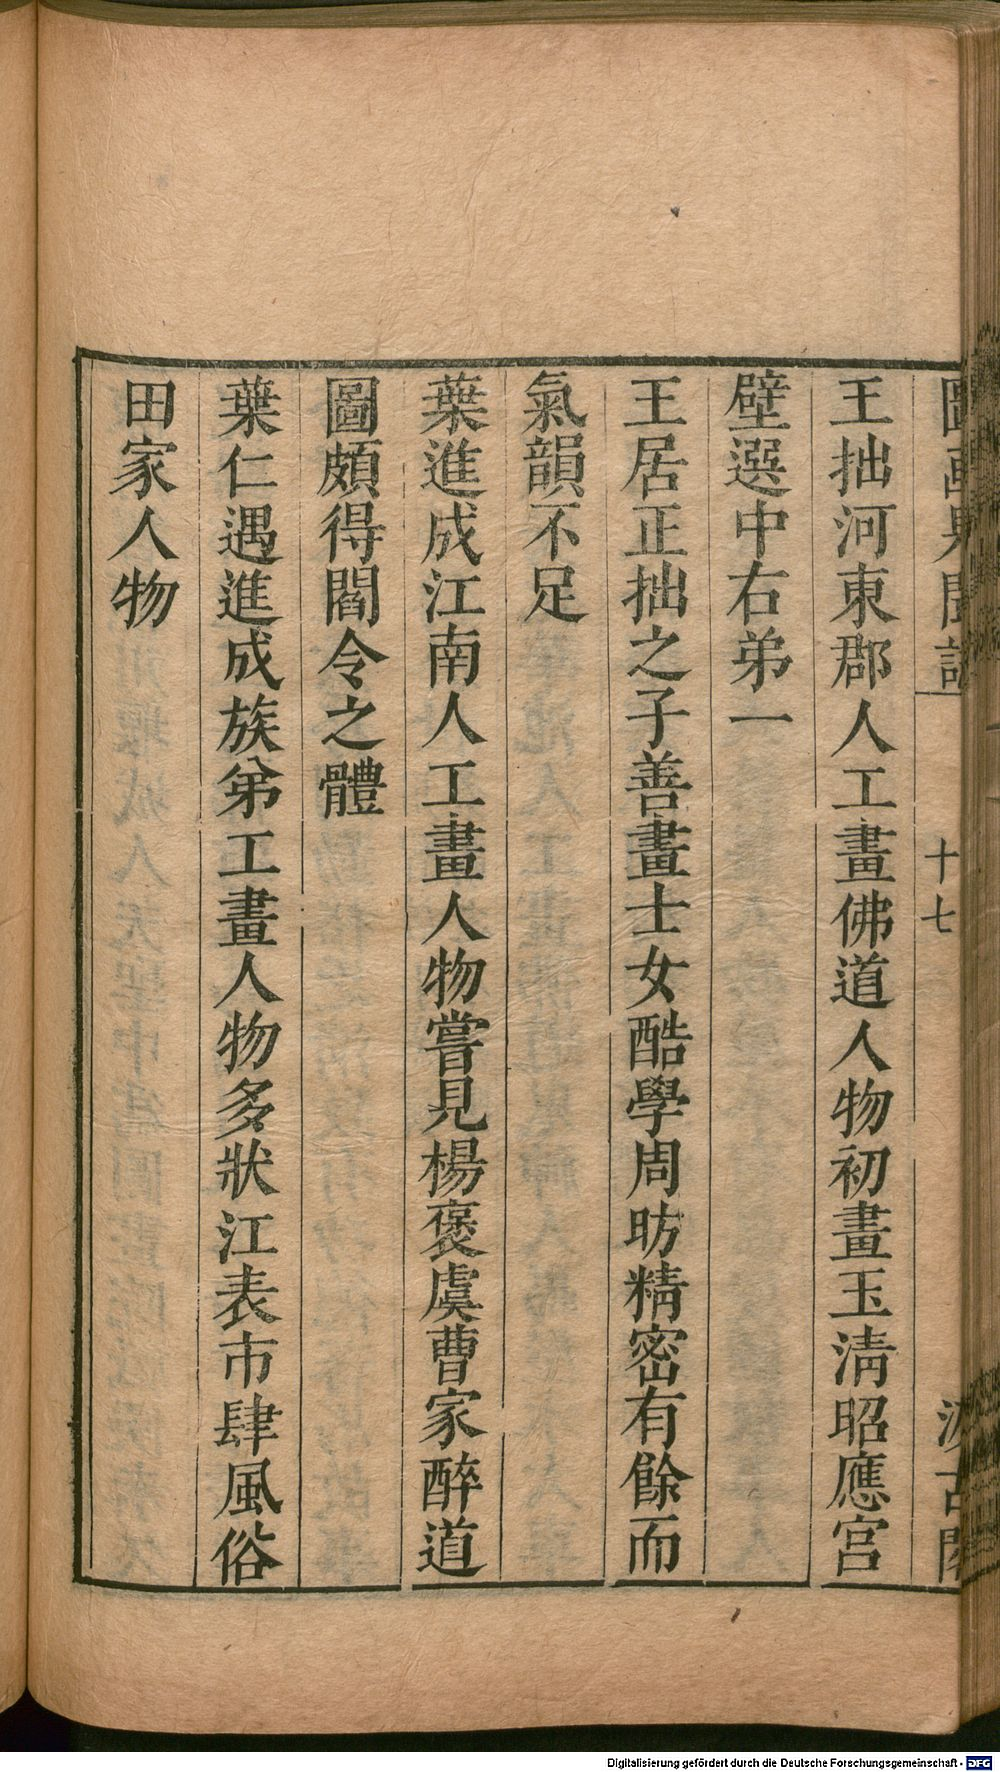 圖畫見聞誌
十七
汲古閣
王拙河東郡人工畫佛道人物初畫玉清昭應宮
壁選中右弟一
王居正拙之子善畫士女酷學周昉精密有餘而
氣韻不足
葉進成江南人工畫人物嘗見楊褒虞曹家醉道
圖頗得閻令之體
葉仁遇進成族弟工畫人物多狀江表市肆風俗
田家人物
Digitalisierung gefördert durch die Deutsche Forschungsgemeinschaft - DFG